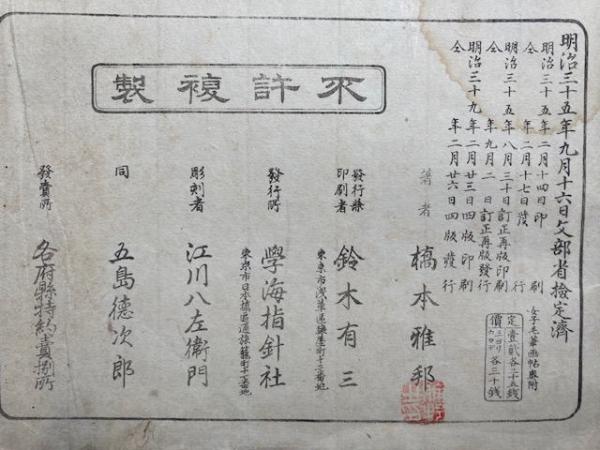 明治三十五年九月十六日文部省檢定濟
女子毛筆画帖奥附
明治三十五年二月十四日印刷
仝年二月十七日發行
明治三十五年八月三十日訂正再版印刷
仝年九月二日訂正再版發行
明治三十九年二月廿三日四版印刷
仝年二月廿六日四版發行
定價
壹貳各二十五銭
三四各三十銭
不許複製
著者
橋本雅邦
發行兼印刷者
鈴木有三
發行所
學海指針社
東京市日本橋區通旅籠町十一番地
彫刻者
江川八左衞門
同
五島德次郎
發賣所
各府縣特約賣捌所